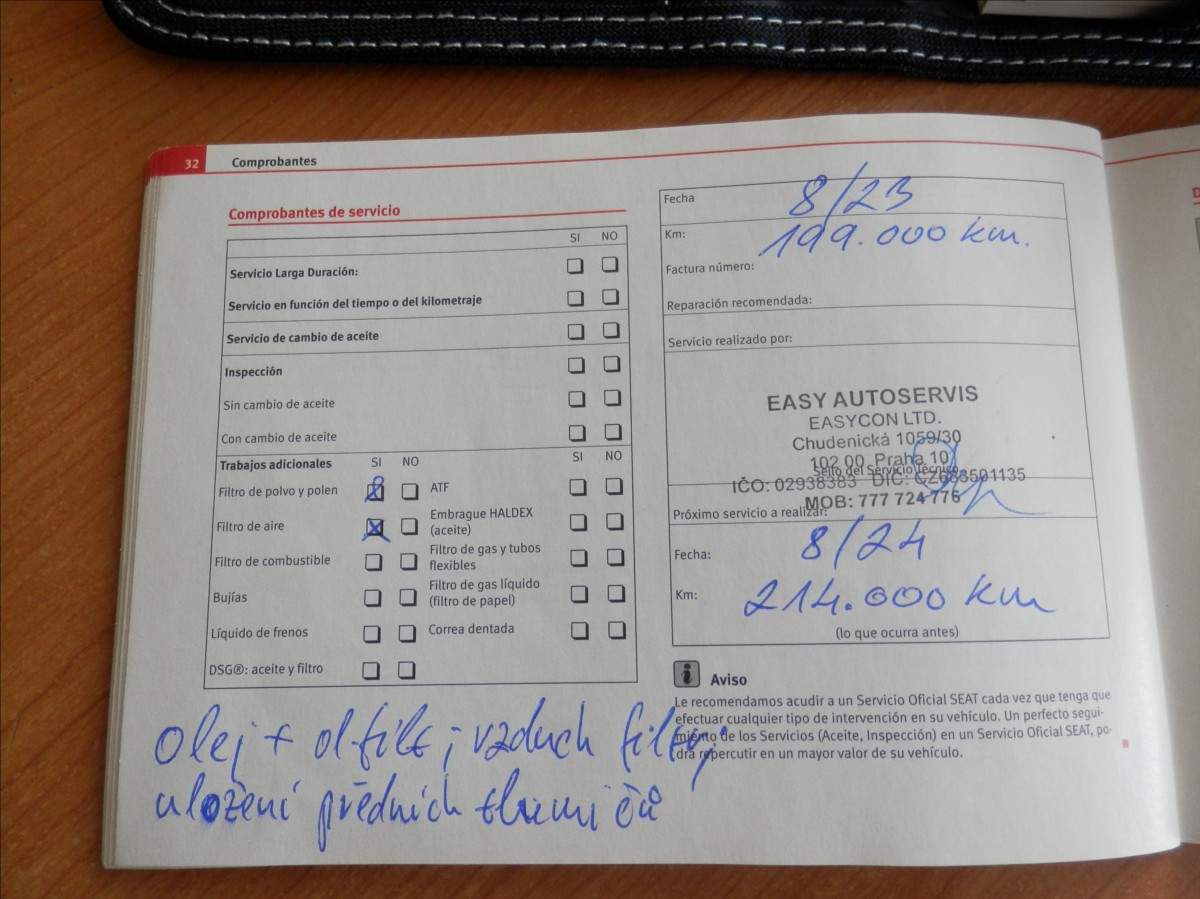 32 Comprobantes
Comprobantes de servicio
SI NO
Servicio Larga Duración:
Servicio en función del tiempo o del kilometraje
Servicio de cambio de aceite
Inspección
Sin cambio de aceite
Con cambio de aceite
Trabajos adicionales SI NO SI NO
Filtro de polvo y polen
ATF
Filtro de aire
Embrague HALDEX
(aceite)
Filtro de combustible
Filtro de gas y tubos
flexibles
Bujías
Filtro de gas líquido
(filtro de papel)
Líquido de frenos
Correa dentada
DSG®: aceite y filtro
olej + ol filt ; vzduch filtr,
uložení předních tlumičů
Fecha 8/23
Km: 199.000 km.
Factura número:
Reparación recomendada:
Servicio realizado por:
EASY AUTOSERVIS
EASYCON LTD.
Chudenická 1059/30
102 00 Praha 10
Sello del Servicio Técnico
IČO: 02938383 DIČ: CZ683501135
MOB: 777 724 776
Próximo servicio a realizar:
Fecha: 8/24
Km: 214.000 km
(lo que ocurra antes)
i Aviso
Le recomendamos acudir a un Servicio Oficial SEAT cada vez que tenga que
efectuar cualquier tipo de intervención en su vehículo. Un perfecto segui-
miento de los Servicios (Aceite, Inspección) en un Servicio Oficial SEAT, po-
drá repercutir en un mayor valor de su vehículo.